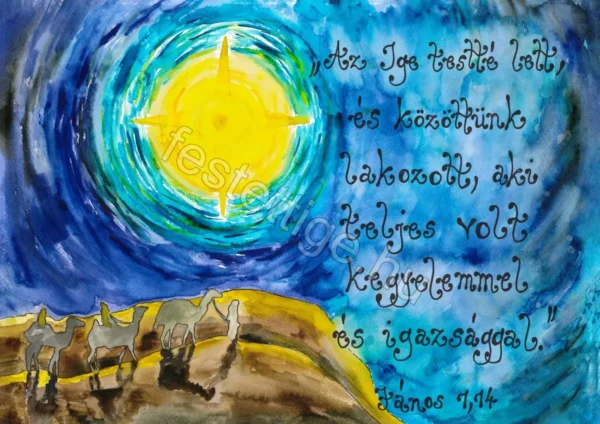 „Az Ige testté lett,
és közöttünk
lakozott, aki
teljes volt
kegyelemmel
és igazsággal."
János 1,14
festettige.hu